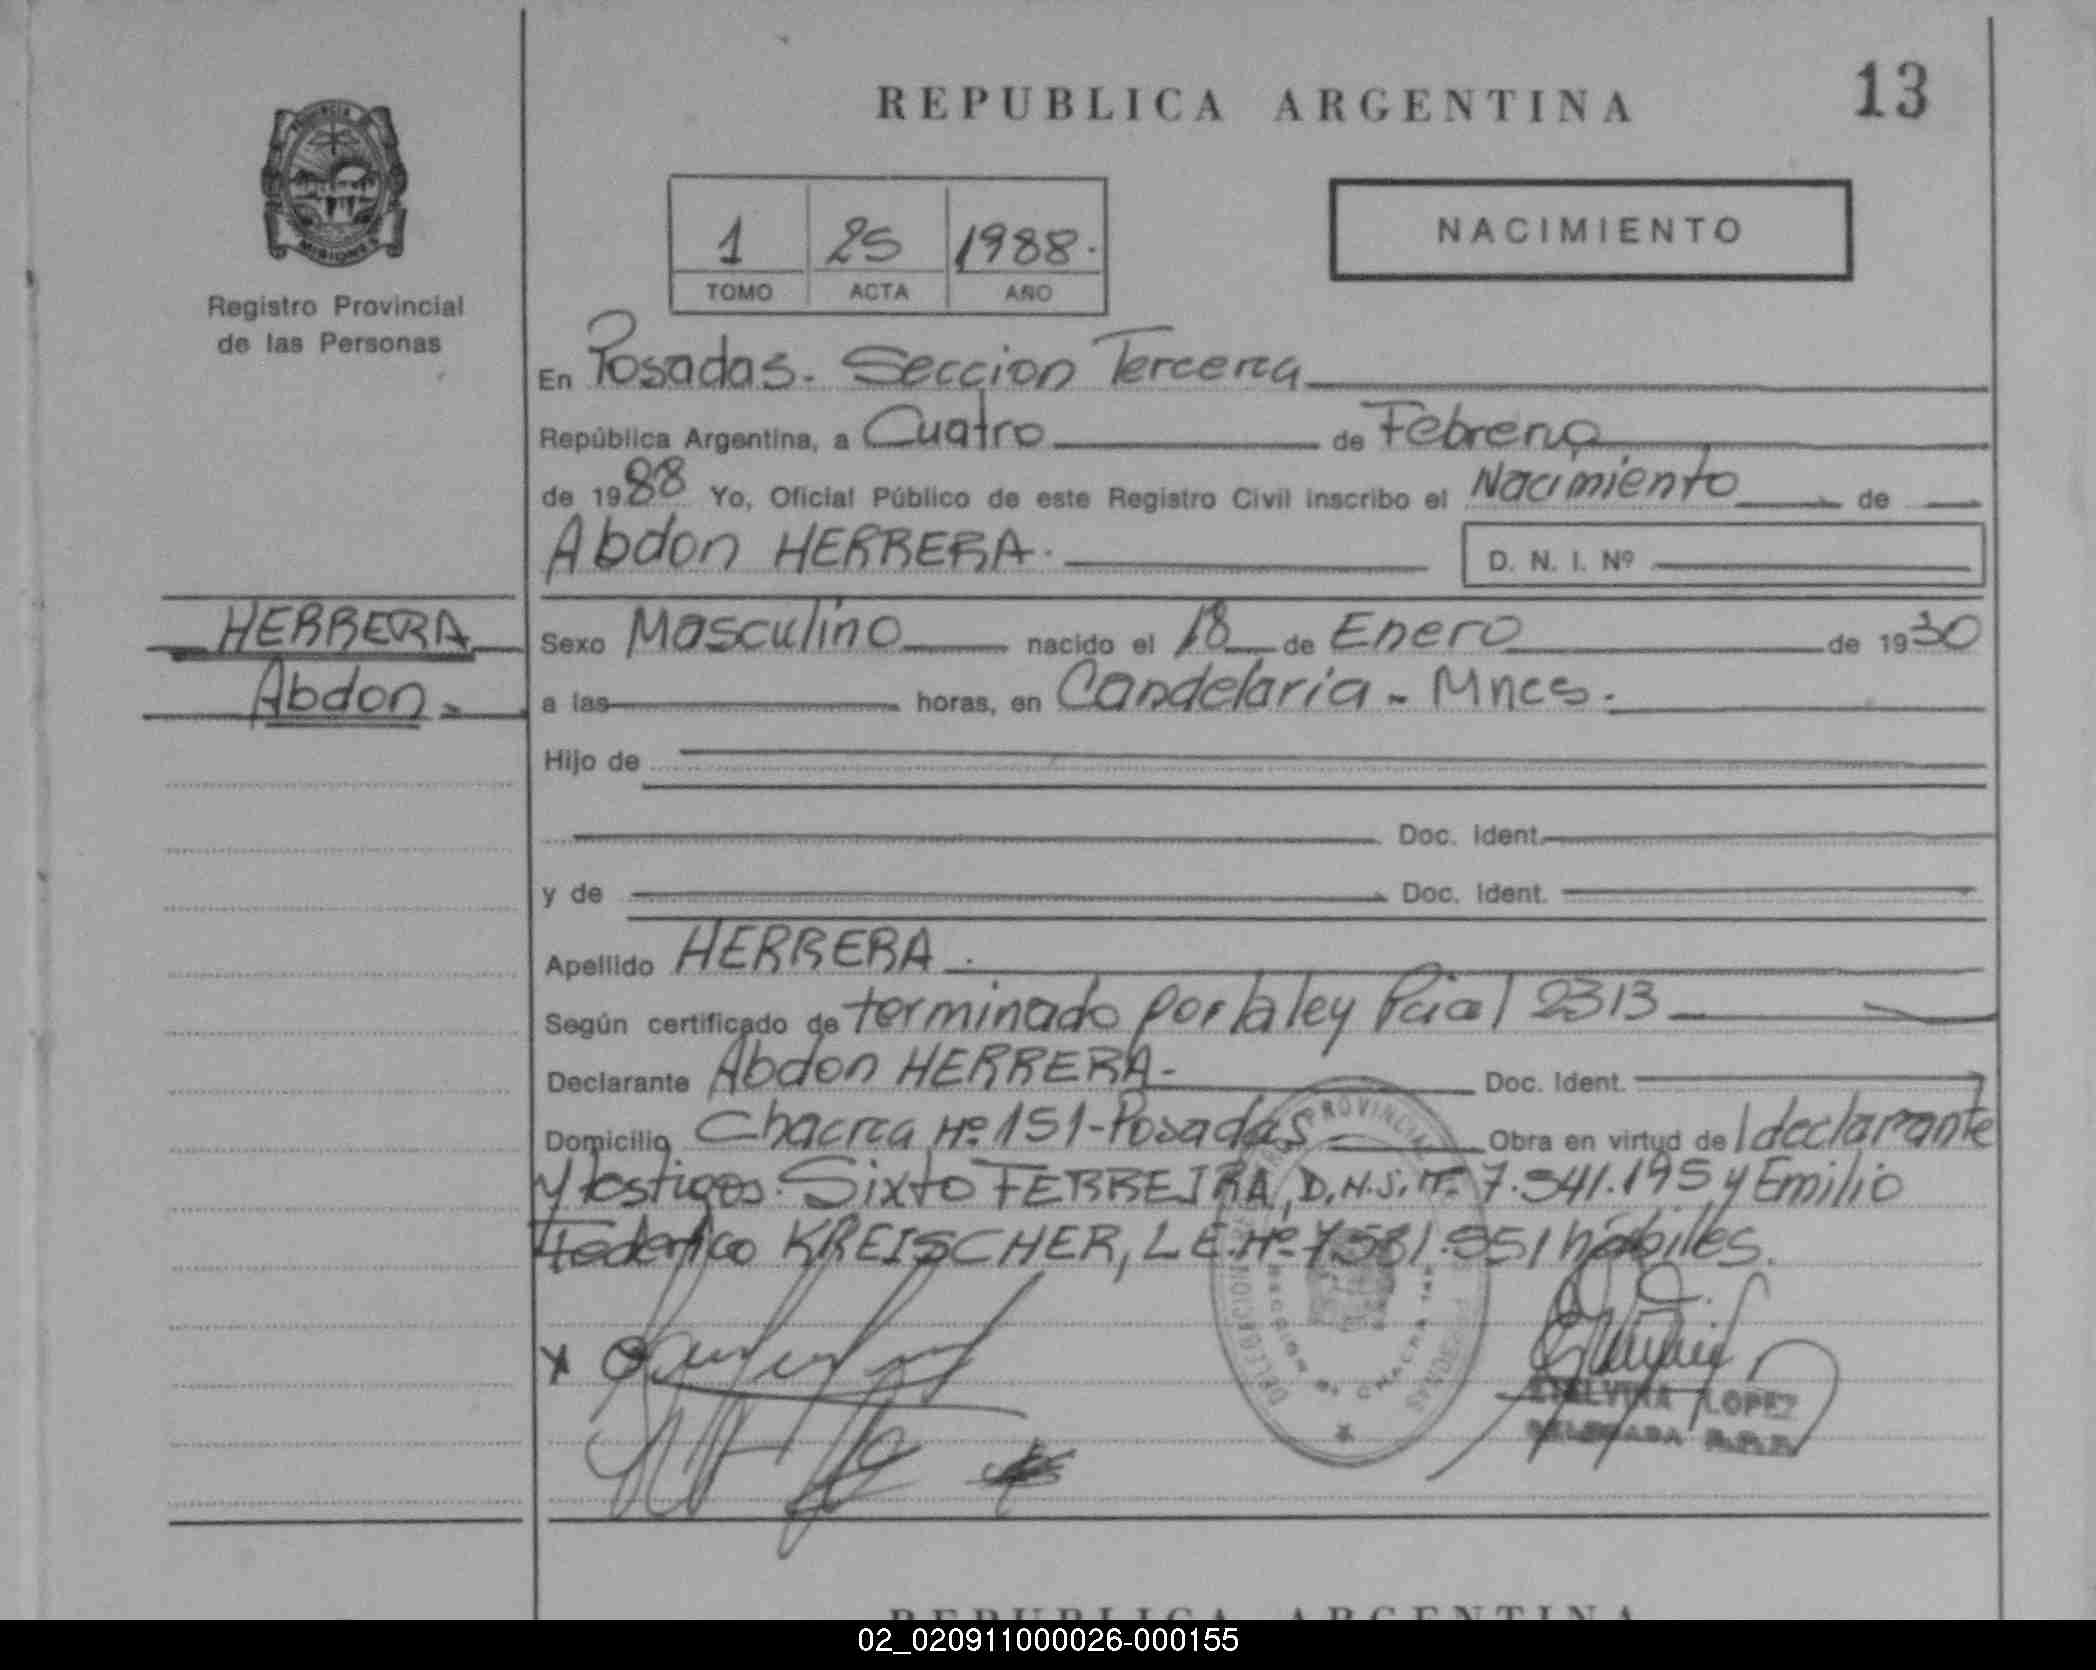 REPUBLICA ARGENTINA
13
PROVINCIA
MISIONES
Registro Provincial
de las Personas
1 25 1988.
TOMO ACTA AÑO
NACIMIENTO
En Posadas. Seccion Tercera
República Argentina, a Cuatro de Febrero
de 1988 Yo, Oficial Público de este Registro Civil inscribo el Nacimiento de
Abdon HERRERA. D. N. I. Nº
HERRERA
Abdon
Sexo Masculino nacido el 18 de Enero de 1930
a las horas, en Candelaria - Mnes.
Hijo de
Doc. Ident.
y de Doc. Ident.
Apellido HERRERA.
Según certificado determinado por la ley Pcial 2313
Declarante Abdon HERRERA- Doc. Ident.
Domicilio Chacra Nº 151-Posadas Obra en virtud del declarante
y testigos: Sixto FERREIRA, D.N.I. Nº 7.541.195 y Emilio
Federico KREISCHER, L E. Nº 7.531.551 hábiles.
LOPEZ
DELEGADA
REPUBLICA ARGENTINA
02_020911000026-000155